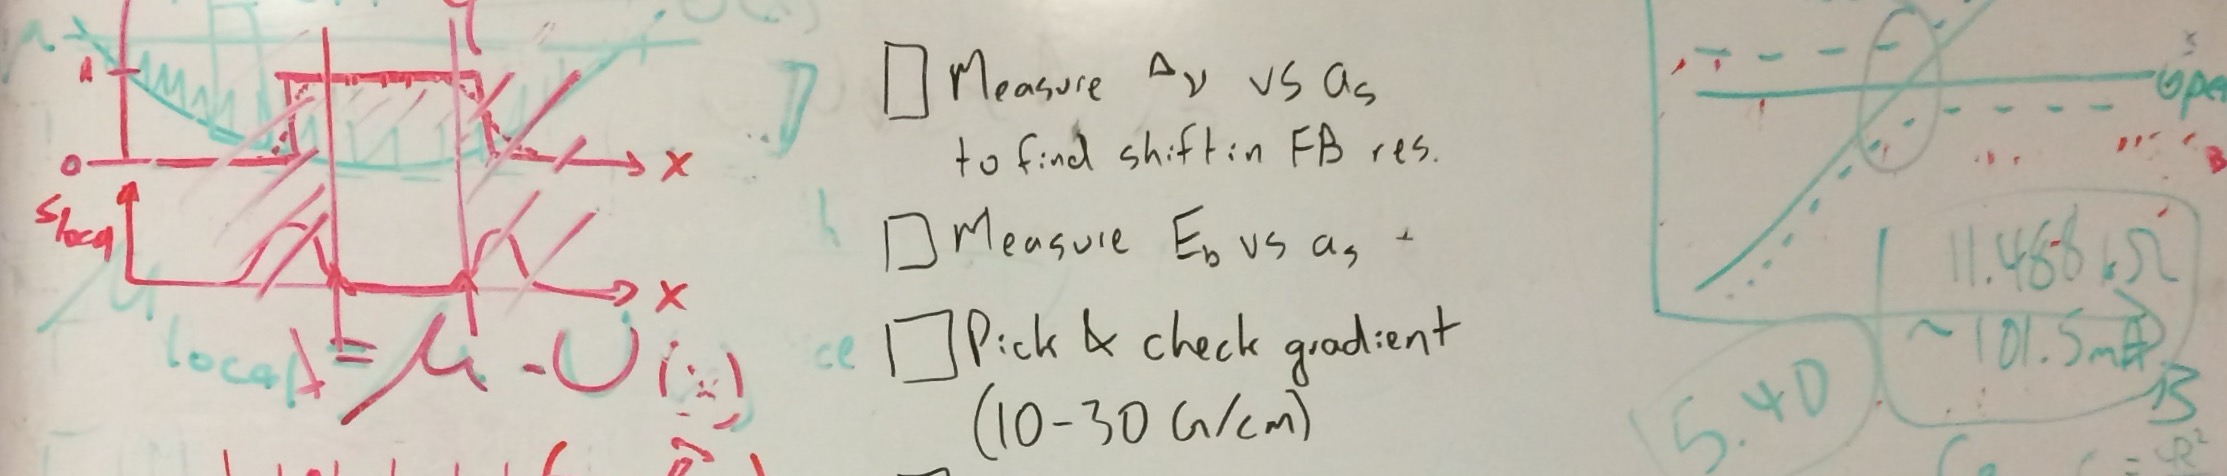 A
0
x
Slocal
x
local
A = μ - U(x)
☐ Measure Δν vs as
to find shift in FB res.
☐ Measure Eb vs as
☐ Pick & check gradient
(10-30 G/cm)
open
B
11.488 kΩ
~101.5mA
B
5.40